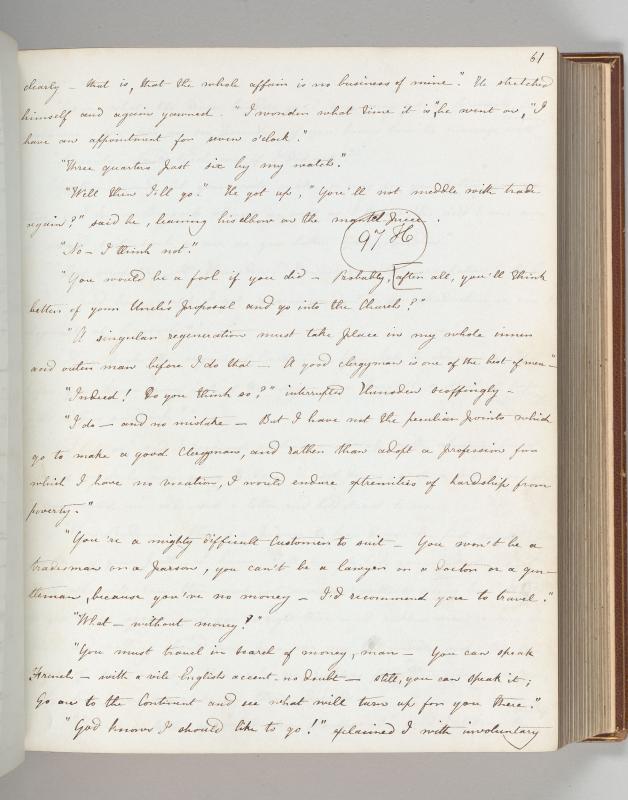 61
clearly – that is, that the whole affair is no business of mine." He stretched
himself and again yawned. "I wonder what time it is", he went on, "I
have an appointment for seven o'clock."
"Three quarters past six by my watch."
"Well then I'll go." He got up, "You'll not meddle with trade
again?" said he, leaning his elbow on the mantel piece.
97 H
"No – I think not."
"You would be a fool if you did – Probably, after all, you'll think
better of your Uncle's proposal and go into the Church?"
"A singular regeneration must take place in my whole inner
and outer man before I do that – A good clergyman is one of the best of men –"
"Indeed! Do you think so?" interrupted Hunsden scoffingly –
"I do – and no mistake – But I have not the peculiar points which
go to make a good Clergyman, and rather than adopt a profession for
which I have no vocation, I would endure extremities of hardship from
poverty."
"You're a mighty difficult Customer to suit – You won't be a
tradesman or a parson, you can't be a lawyer or a doctor or a gen–
tleman, because you've no money – I'd recommend you to travel."
"What – without money?"
"You must travel in search of money, man – You can speak
French – with a vile English accent, no doubt – still, you can speak it;
Go on to the Continent and see what will turn up for you there."
"God knows I should like to go!" exclaimed I with involuntary